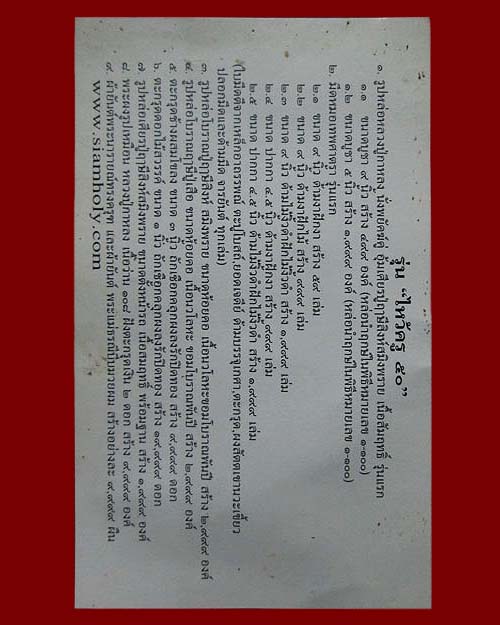 รุ่น “ไหว้ครู ๕๐”
๑. รูปหล่อหลวงปู่กาหลง นั่งพยัคฆ์คู่ อุ้มเศียรปู่ฤาษีสิงห์สมิงพราย เนื้อสัมฤทธิ์ รุ่นแรก
๑.๑ ขนาดบูชา ๙ นิ้ว สร้าง ๔๙๙ องค์ (หล่อนำฤกษ์ในพิธีหมายเลข ๑-๑๐๐)
๑.๒ ขนาดบูชา ๕ นิ้ว สร้าง ๑,๙๙๙ องค์ (หล่อนำฤกษ์ในพิธีหมายเลข ๑-๑๐๐)
๒. มีดหมอเทพศาตรา รุ่นแรก
๒.๑ ขนาด ๙ นิ้ว ด้ามงาฝักงา สร้าง ๕๙ เล่ม
๒.๒ ขนาด ๙ นิ้ว ด้ามงาฝักไม้ สร้าง ๙๙๙ เล่ม
๒.๓ ขนาด ๙ นิ้ว ด้ามไม้งิ้วดำฝักไม้งิ้วดำ สร้าง ๑,๙๙๙ เล่ม
๒.๔ ขนาด ปากกา ๔.๕ นิ้ว ด้ามงาฝักงา สร้าง ๙๙๙ เล่ม
๒.๕ ขนาด ปากกา ๔.๕ นิ้ว ด้ามไม้งิ้วดำฝักไม้งิ้วดำ สร้าง ๑,๙๙๙ เล่ม
(ใบมีดตีจากเหล็กอาถรรพณ์ ตะปูโบสถ์,ยอดเจดีย์ ด้ามบรรจุเกศา,ตะกรุด,ผงสัตตเขานวะเขี้ยว
ปลอกมีดและด้ามมีด จารยันต์ ทุกเล่ม)
๓. รูปหล่อโบราณปู่ฤาษีสิงห์ สมิงพราย ขนาดห้อยคอ เนื้อนวโลหะชอมโบราณพันปี สร้าง ๒,๙๙๙ องค์
๔. รูปหล่อโบราณปู่ฤาษีปู่เสือ ขนาดห้อยคอ เนื้อนวโลหะ ชอมโบราณพันปี สร้าง ๒,๙๙๙ องค์
๕. ตะกรุดช้างผสมโขลง ขนาด ๓ นิ้ว ถักเชือกคลุกผงลงรักปิดทอง สร้าง ๙,๙๙๙ ดอก
๖. ตะกรุดดอกไม้สวรรค์ ขนาด ๑ นิ้ว ถักเชือกคลุกผงลงรักปิดทอง สร้าง ๑๙,๙๙๙ ดอก
๗. รูปหล่อเศียรปู่ฤาษีสิงห์สมิงพราย ขนาดตั้งหน้ารถ เนื้อสัมฤทธิ์ พร้อมฐาน สร้าง ๑,๙๙๙ องค์
๘. พระผงรูปเหมือน หลวงปู่กาหลง เนื้อว่าน ๑๐๘ ฝังตะกรุดเงิน ๒ ดอก สร้าง ๙,๙๙๙ องค์
๙. ผ้ายันต์พระนารายณ์ทรงครุฑ และผ้ายันต์ พระแม่ธรณีบีบมวยผม สร้างอย่างละ ๙,๙๙๙ ผืน
www.siamholy.com